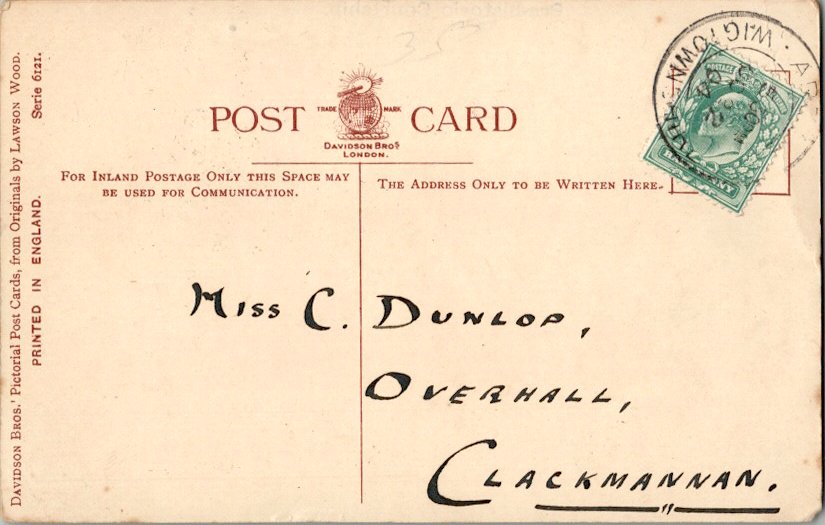 POST CARD
TRADE MARK
DAVIDSON BROS
LONDON.
FOR INLAND POSTAGE ONLY THIS SPACE MAY
BE USED FOR COMMUNICATION.
THE ADDRESS ONLY TO BE WRITTEN HERE.
WIGTOWN
POSTAGE
MISS C. DUNLOP,
OVERHALL,
CLACKMANNAN.
DAVIDSON BROS.' Pictorial Post Cards, from Originals by LAWSON WOOD. Serie 6121.
PRINTED IN ENGLAND.